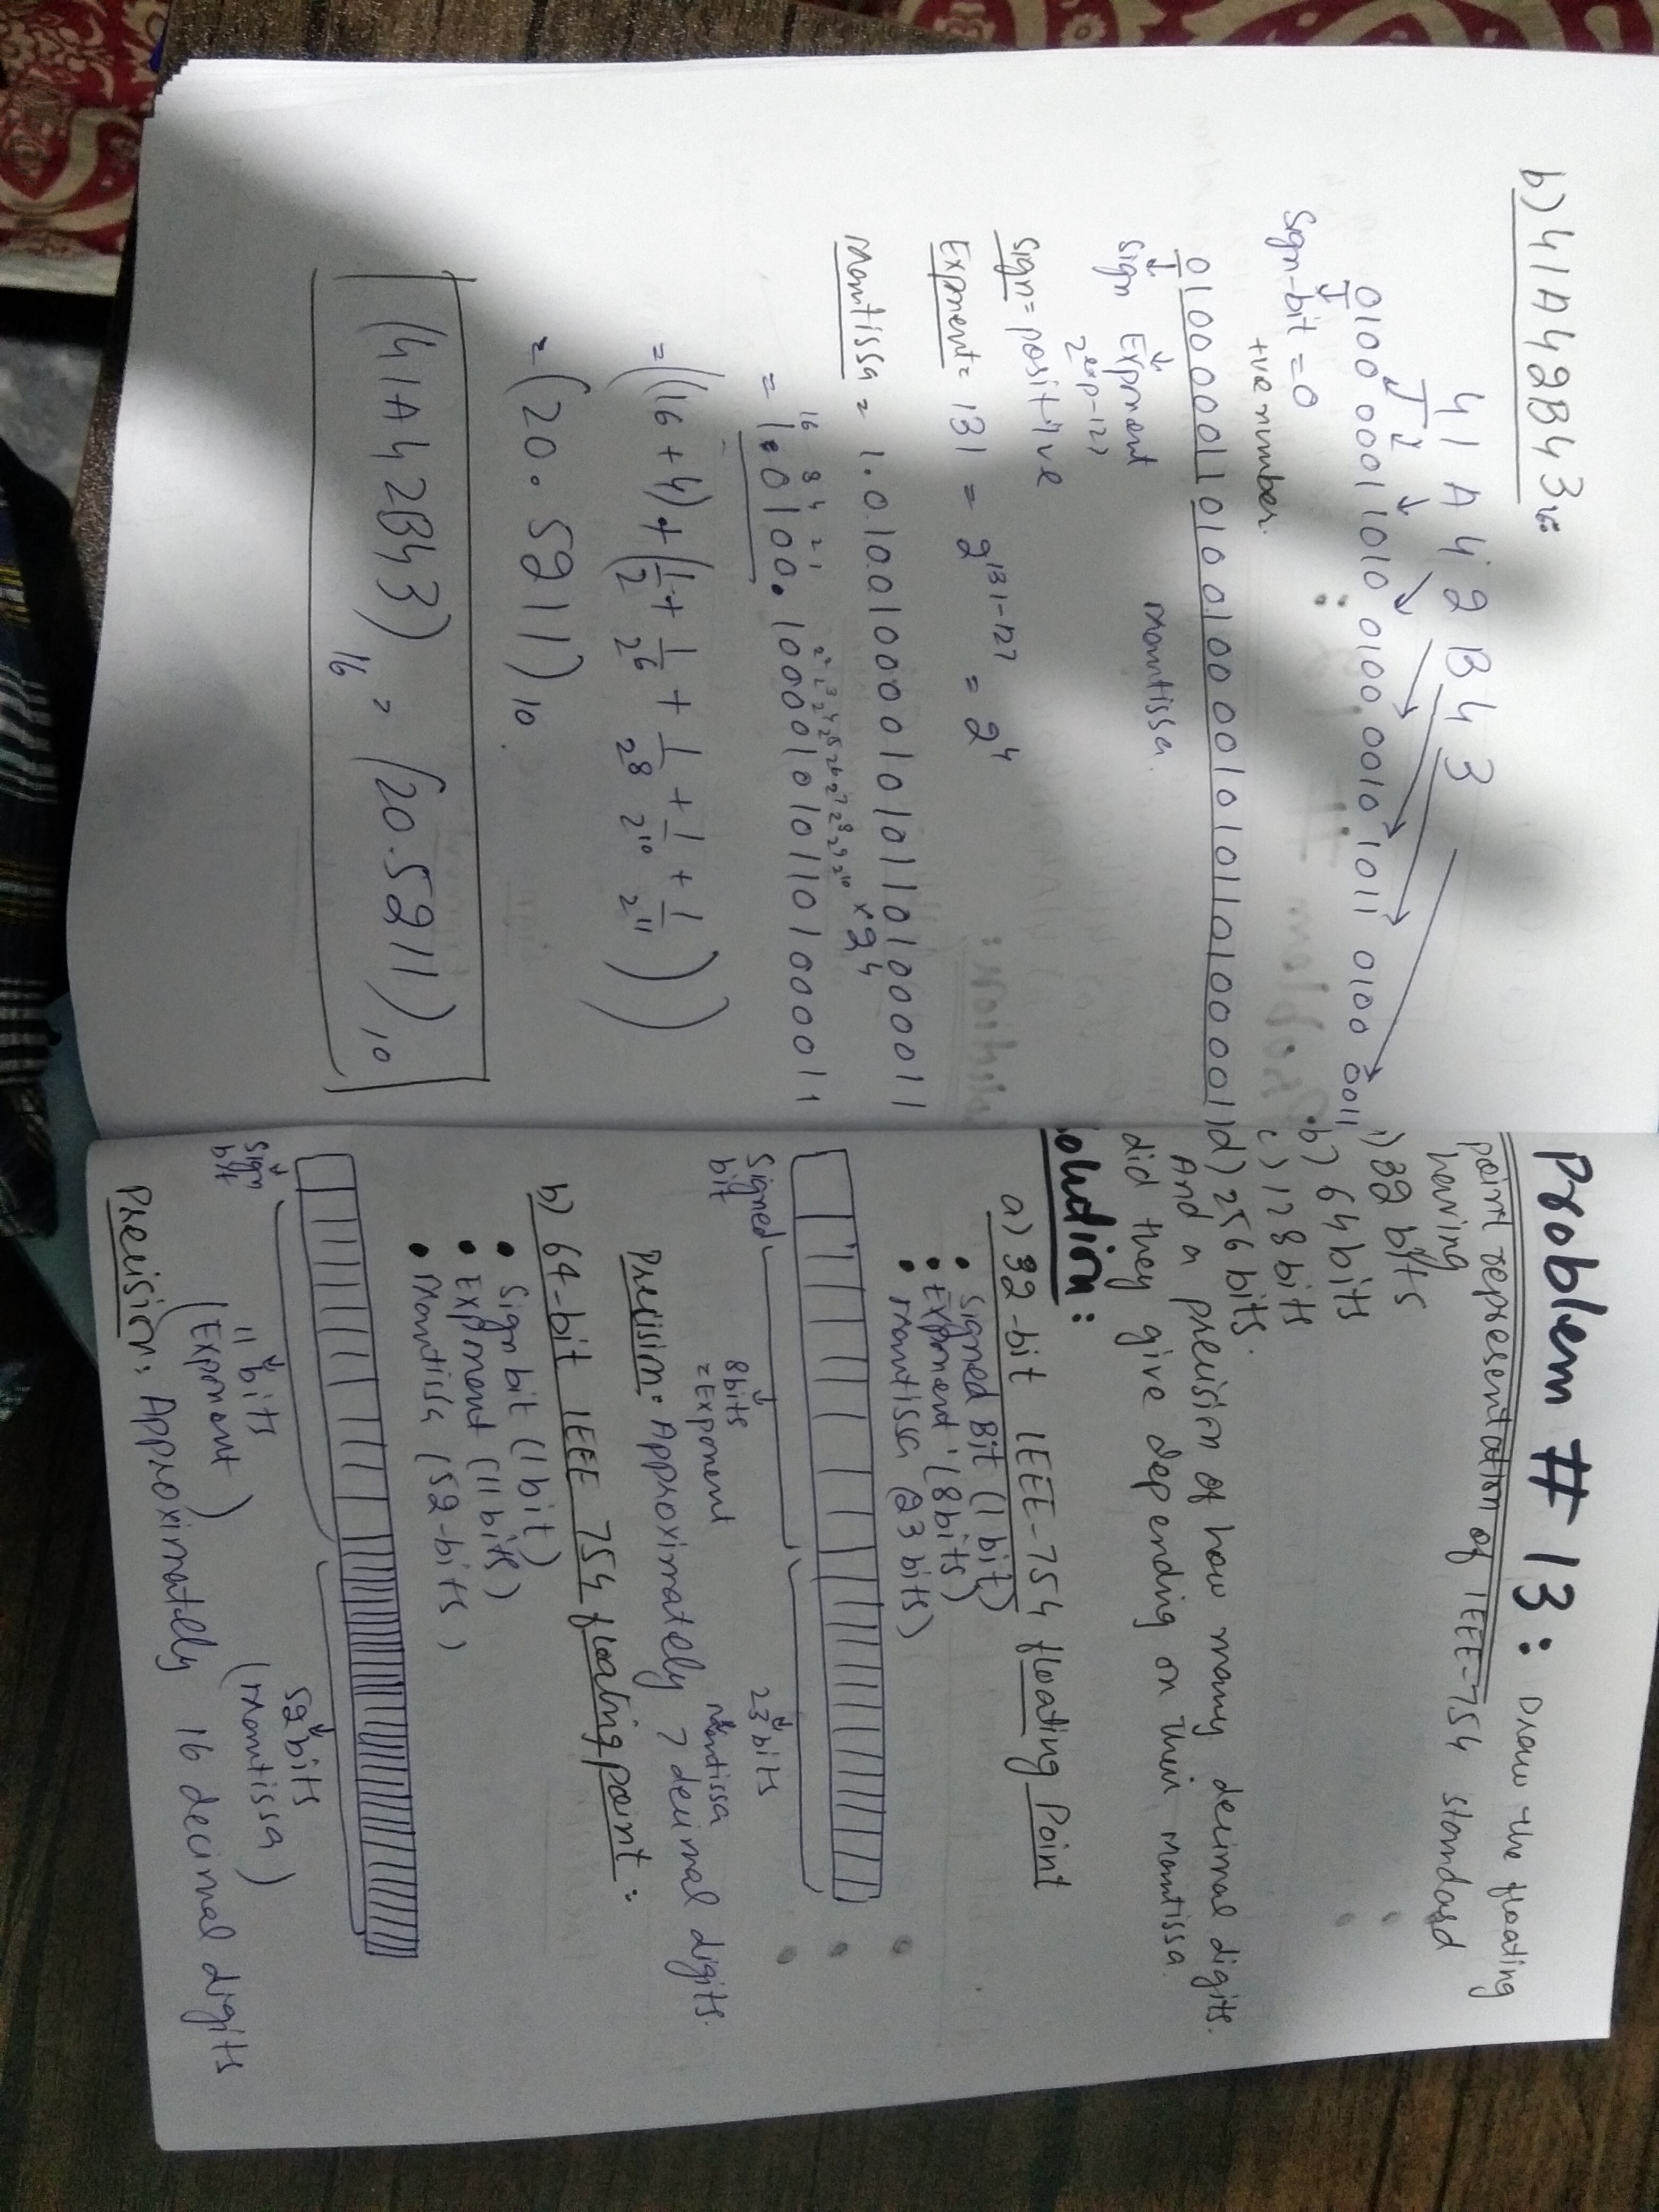 b) 41A42B43:
4 1 A 4 2 B 4 3
0100 0001 1010 0100 0010 1011 0100 0011
sign-bit = 0
+ve number.
01000001101001000010101101000011
sign Exponent mantissa.
2^exp-127
sign = positive
Exponent = 131 = 2^131-127 = 2^4
Mantissa = 1.01001000010101101000011
× 2^4
16 8 4 2 1
= 1.0100.1000010101101000011
= ((16+4) + (1/2 + 1/2^6 + 1/2^8 + 1/2^10 + 1/2^11))
= (20.5211)10.
(41A42B43)16 = (20.5211)10
Problem # 13: Draw the floating
point representation of IEEE-754 standard
having
a) 32 bits
b) 64 bits
c) 128 bits
d) 256 bits
And a precision of how many decimal digits.
did they give depending on their mantissa.
Solution:
a) 32-bit IEEE-754 floating Point
• Signed Bit (1 bit)
• Exponent (8 bits)
• Mantissa (23 bits)
Signed bit
8 bits = Exponent
23 bits Mantissa
Precision: Approximately 7 decimal digits.
b) 64-bit IEEE 754 floating point:
• Sign bit (1 bit)
• Exponent (11 bits)
• Mantissa (52-bits)
Sign bit
11 bits (Exponent)
52 bits (Mantissa)
Precision: Approximately 16 decimal digits